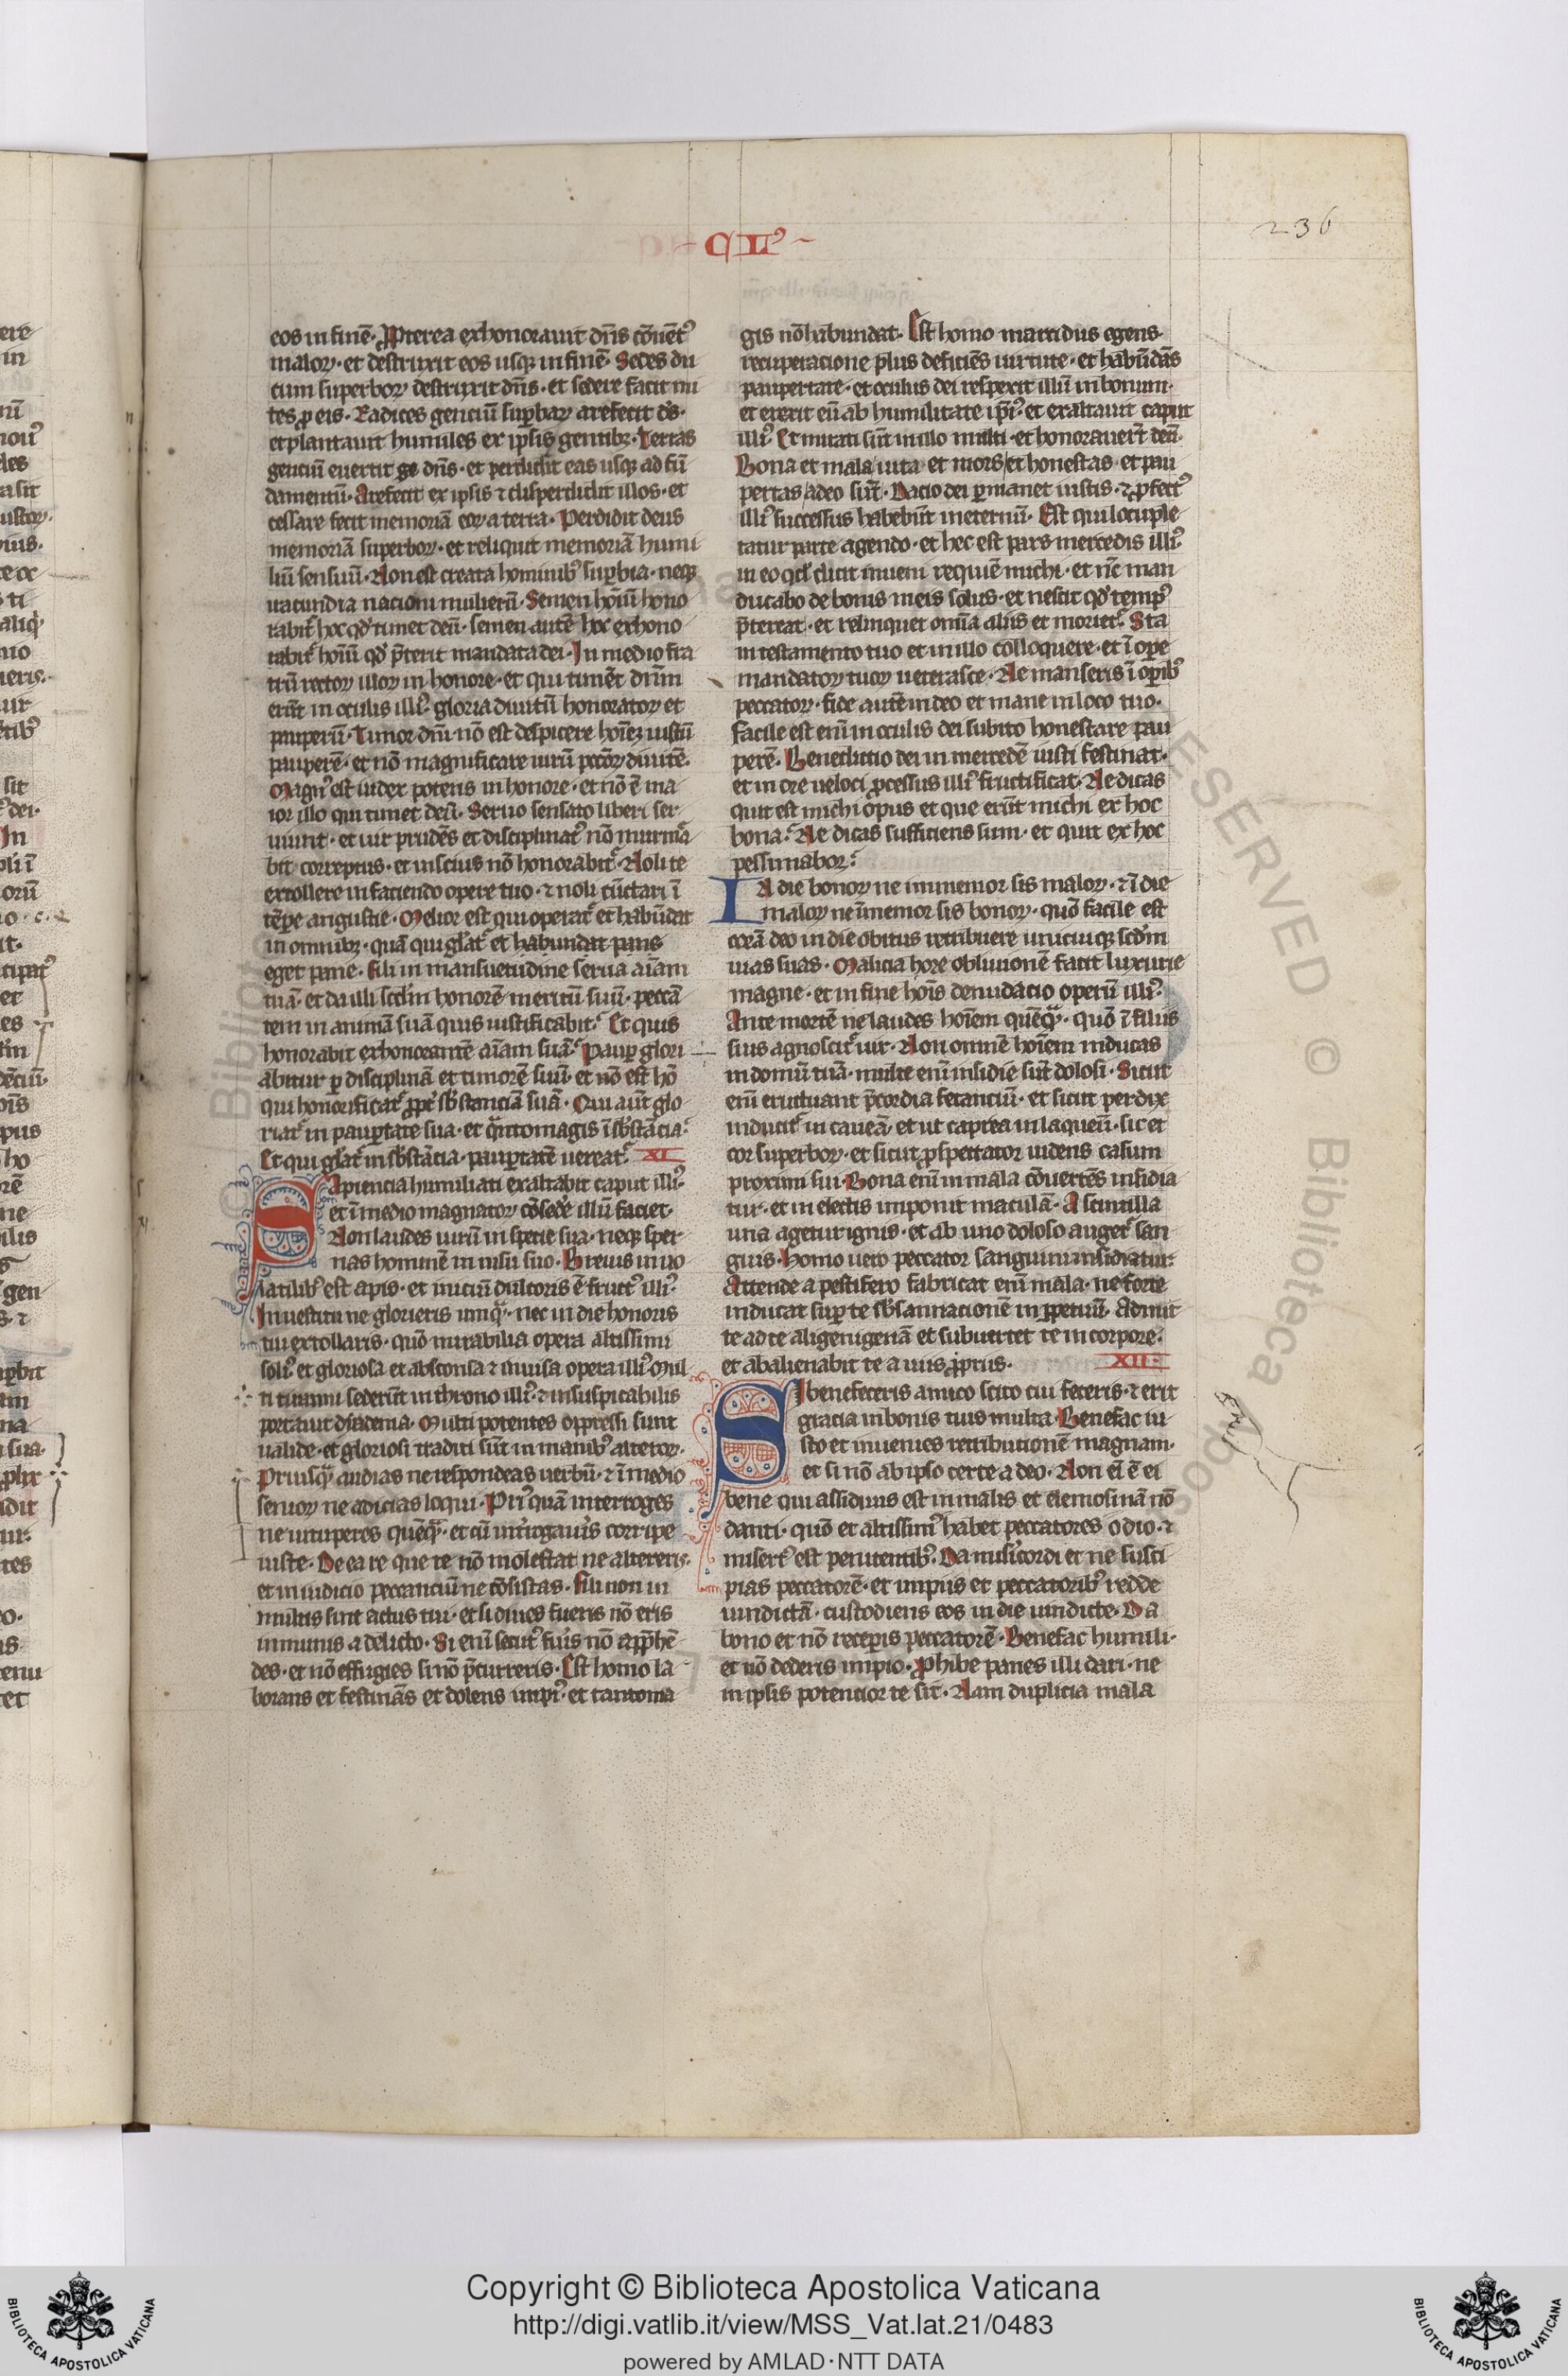 CLI9
236
eos in finē. Ꝓpterea exhonorauit dn̄s cōuēt9
maloꝝ. et destruxit eos usqꝫ in finē. Sedes du
cum superboꝝ destruxit dn̄s. et sedere facit mi
tes ꝓ eis. Radices genciū suꝑbaꝝ arefecit dˢ.
et plantauit humiles ex ipsis gentibꝫ. Terras
genciū euertit ge dn̄s. et perdidit eas usqꝫ ad fū
damentū. Arefecit ex ipsis ⁊ disperdidit illos. et
cessare fecit memoriā eoꝝ a terra. Perdidit deus
memoriā superboꝝ. et reliquit memoriā humi
liū sensuū. Non est creata hominibꝰ suꝑbia. neqꝫ
iracundia nacioni mulierū. Semen hoīū hono
rabitᷣ hoc qd̕ timet deū. semen autē hoc exhono
rabitᷣ hoīū qd̕ p̄terit mandata dei. In medio fra
trū rector illoꝝ in honore. et qui timēt dn̄m
erūt in oculis illiꝰ. gloria diuitū honoratoꝝ et
pauperū. Timor dn̄i nō est despicere hoīeꝫ iustū
pauperē. et nō magnificare uirū pccōꝝ diuitē.
Magnꝰ est iudex potens in honore. et nō ē ma
ior illo qui timet deū. Seruo sensato liberi ser
uiunt. et uir prudēs et disciplinatꝰ nō murmᵃ
bit correptus. et inscius nō honorabitᷣ. Noli te
extollere in faciendo opere tuo. ⁊ noli cūctari ī
tēpe angustie. Melior est qui operatᷣ et habūdat
in omnibꝫ. quā qui gl̕atᷣ et habundat panis
eget pane. Fili in mansuetudine serua aīam
tuā. et da illi scd̕m honorē meritū suū. peccā
tem in animā suā quis iustificabit. Et quis
honorabit exhonorantē aīam suā. Pauꝑ glori
abitur ꝑ disciplinā et timorē suū. et nō est hō
qui honorificatᷣ ꝓpt̕ sb̕stanciā suā. Qui aūt glo
riatᷣ in pauꝑtate sua. et qᵃntomagis ī sb̕stācia.
Et qui gl̕atᷣ in sb̕stācia. pauꝑtatē uereatᷣ. XI
Sapiencia humiliati exaltabit caput illiꝰ.
et ī medio magnatoꝝ cōsed̕e illū faciet.
Non laudes uirū in specie sua. neqꝫ sper
nas hominē in uisu suo. Breuis in uo
latilibꝰ est apis. et iniciū dulcoris ē fructꝰ illiꝰ.
In uestitu ne glorieris umqᵃ. nec in die honoris
tui extollaris. quō mirabilia opera altissimi
soliꝰ. et gloriosa et absconsa ⁊ inuisa opera illiꝰ. Mul
ti tiranni sederūt in throno illiꝰ. ⁊ insuspicabilis
portauit dyadema. Multi potentes oppressi sunt
ualide. et gloriosi traditi sūt in manibꝰ alteroꝝ.
Priusqᵃ audias ne respondeas uerbū. ⁊ ī medio
senioꝝ ne adicias loqui. Priꝰ quā interroges
ne uituperes quēqᵃ. et cū int̕rogau̕is corripe
iuste. De ea re que te nō molestat ne alteretis.
et in iudicio peccanciū ne cōsistas. Fili non in
multis sint actus tui. et si diues fueris nō eris
inmunis a delicto. Si enī secutꝰ fu̕is nō app̄hē
des. et nō effugies si nō p̄curreris. Est homo la
borans et festinās et dolens impiꝰ. et tantoma
gis nō habundat. Est homo marcidus egens.
recuperacione plus deficiēs uirtute. et habūdās
paupertate. et oculus dei respexit illū in bonum.
et erexit eū ab humilitate ip̄iꝰ. et exaltauit caput
illiꝰ. Et mirati sūt in illo multi. et honorauer̄t deū.
Bona et mala uita et mors et honestas. et pau
pertas a deo sūt. Dacio dei ꝑmanet iustis. ⁊ ꝓfectꝰ
illiꝰ successus habebūt in eternū. Est qui locuple
tatur parce agendo. et hec est pars mercedis illiꝰ.
in eo qd̕ dicit inueni requiē michi. et nc̄ man
ducabo de bonis meis solus. et nescit qd̕ tempꝰ
p̄tereat. et relinquet omīa aliis et morietᷣ. Sta
in testamento tuo et in illo colloquere. et ī ope
mandatoꝝ tuoꝝ ueterasce. Ne manseris ī opīb9
peccatoꝝ. fide autē in deo et mane in loco tuo.
Facile est enī in oculis dei subito honestare pau
perē. Benedictio dei in mercedē iusti festinat.
et in ore ueloci ꝓcessus illiꝰ fructificat. Ne dicas
quit est michi opus et que erūt michi ex hoc
bona. Ne dicas sufficiens sum. et quit ex hoc
pessimabor.
IN die bonoꝝ ne inmemor sis maloꝝ. ⁊ ī die
maloꝝ ne īmemor sis bonoꝝ. quō facile est
corā deo in die obitus retribuere unicuiqꝫ scd̕m
uias suas. Malicia hore obliuionē facit luxurie
magne. et in fine hoīs denudacio operū illiꝰ.
Ante mortē ne laudes hoīem quēqᵃ. quō ī filiis
suis agnoscitᷣ uir. Non omnē hoīem inducas
in domū tuā. multe enī insidie sūt dolosi. Sicut
enī eructuant p̄cordia fetanciū. et sicut perdix
inducitᷣ in caueā. et ut caprea in laqueū. sic et
cor superboꝝ. et sicut ꝓspectator uidens casum
proximi sui. Bona enī in mala cōuertēs insidia
tur. et in electis imponit maculā. A scintilla
una agetur ignis. et ab uno doloso augetᷣ san
guis. Homo uero peccator sanguini insidiatur.
Attende a pestifero fabricat enī mala. ne forte
inducat suꝑ te sb̕sannacionē in ꝑpetuū. Admit
te ad te aligenigenā et subuertet te in corpore.
et abalienabit te a uiis ꝓpriis. XII
Si benefeceris amico scito cui feceris. ⁊ erit
gracia in bonis tuis multa. Benefac iu
sto et inuenies retributionē magnam.
et si nō ab ipso certe a deo. Non eī ē ei
bene qui assiduus est in malis et elemosinā nō
danti. quō et altissimꝰ habet peccatores odio. ⁊
misertꝰ est penitentibꝰ. Da mis̕icordi et ne susci
pias peccatorē. et impiis et peccatoribꝰ redde
uindictā. custodiens eos in die uindicte. Da
bono et nō receperis peccatorē. Benefac humili.
et nō dederis impio. Ꝓhibe panes illi dari. ne
in ipsis potencior te sit. Nam duplicia mala
Copyright © Biblioteca Apostolica Vaticana
http://digi.vatlib.it/view/MSS_Vat.lat.21/0483
powered by AMLAD·NTT DATA
BIBLIOTECA APOSTOLICA VATICANA
BIBLIOTECA APOSTOLICA VATICANA